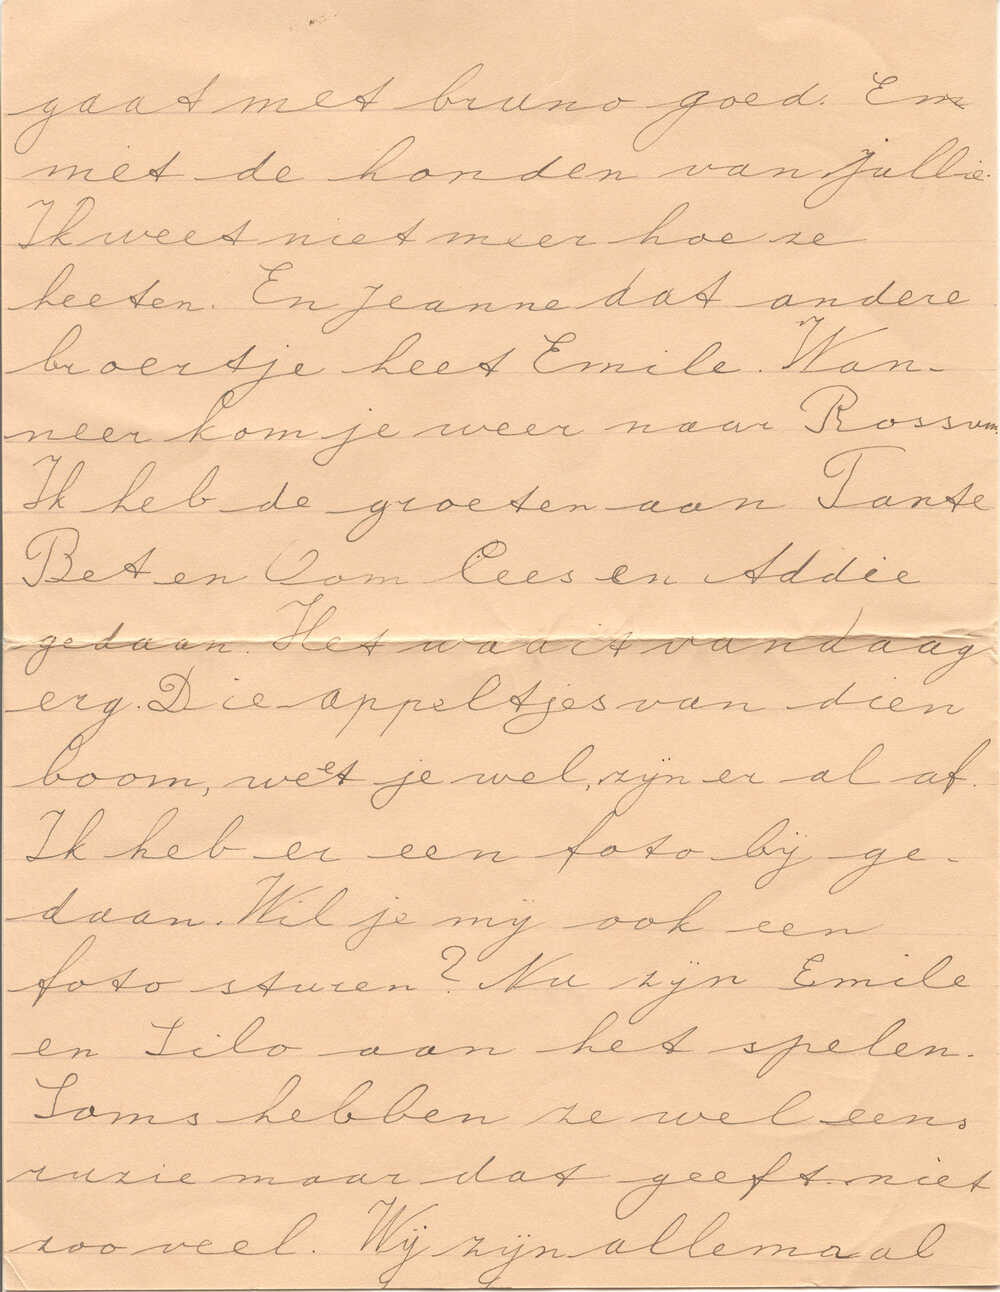 gaat met bruno goed. En
met de honden van jullie.
Ik weet niet meer hoe ze
heeten. En Jeanne dat andere
broertje heet Emile. Wan-
neer kom je weer naar Rossum.
Ik heb de groeten aan Tante
Bet en Oom Cees en Addie
gedaan. Het waait vandaag
erg. Die appeltjes van dien
boom, weet je wel, zijn er al af.
Ik heb er een foto bij ge-
daan. Wil je mij ook een
foto sturen? Nu zijn Emile
en Silo aan het spelen.
Soms hebben ze wel eens
ruzie maar dat geeft niet
zoo veel. Wij zijn allemaal